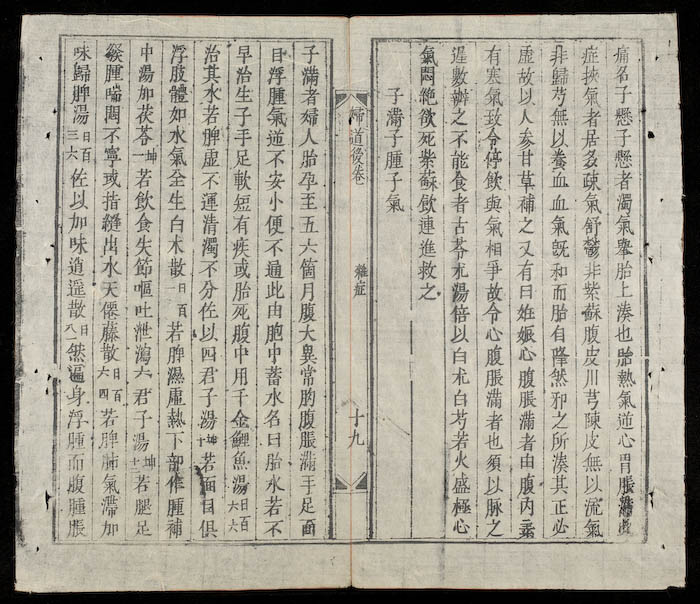 痛名子懸子懸者濁氣舉胎上湊也胎熱氣逆心胃脹滿
症挾氣者居多疎氣舒鬱非紫蘇腹皮川芎陳皮無以流氣
非歸芍無以養血血氣旣和而胎自降然邪之所湊其正必
虛故以人參甘草補之又有曰姙娠心腹脹滿者由腹內素
有寒氣致令停飲與氣相爭故令心腹脹滿者也須以脉之
遲數辨之不能食者古苓朮湯倍以白朮白芍若火盛極心
氣悶絶欲死紫蘇飲連進救之
子滿子腫子氣
婦道後卷
雜症
十九
子滿者婦人胎孕至五六箇月腹大異常胸腹脹滿手足面
目浮腫氣逆不安小便不通此由胞中蓄水名曰胎水若不
早治生子手足軟短有疾或胎死腹中用千金鯉魚湯日百六六
治其水若脾虛不運清濁不分佐以四君子湯坤十若面目俱
浮肢體如水氣全生白朮散日百一若脾濕虛熱下部作腫補
中湯加茯苓坤一若飲食失節嘔吐泄瀉六君子湯坤十二若腿足
發腫喘悶不寧或指縫出水天僊藤散日百六四若脾肺氣滯加
味歸脾湯日百三六佐以加味逍遥散日八一然遍身浮腫而腹腫脹